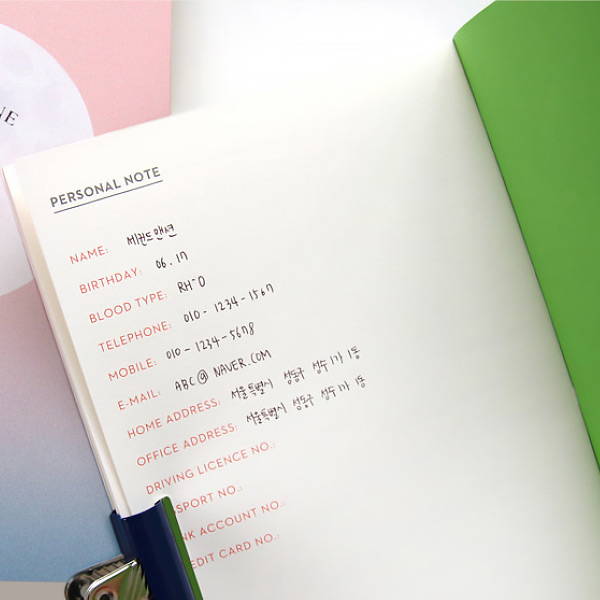 NE
PERSONAL NOTE
NAME: 세컨드맨션
BIRTHDAY: 06.17
BLOOD TYPE: RH-O
TELEPHONE: 010-1234-1567
MOBILE: 010-1234-5678
E-MAIL: ABC@NAVER.COM
HOME ADDRESS: 서울특별시 성동구 성수1가 1동
OFFICE ADDRESS: 서울특별시 성동구 성수1가 1동
DRIVING LICENCE NO.:
SPORT NO.:
NK ACCOUNT NO.:
EDIT CARD NO.: